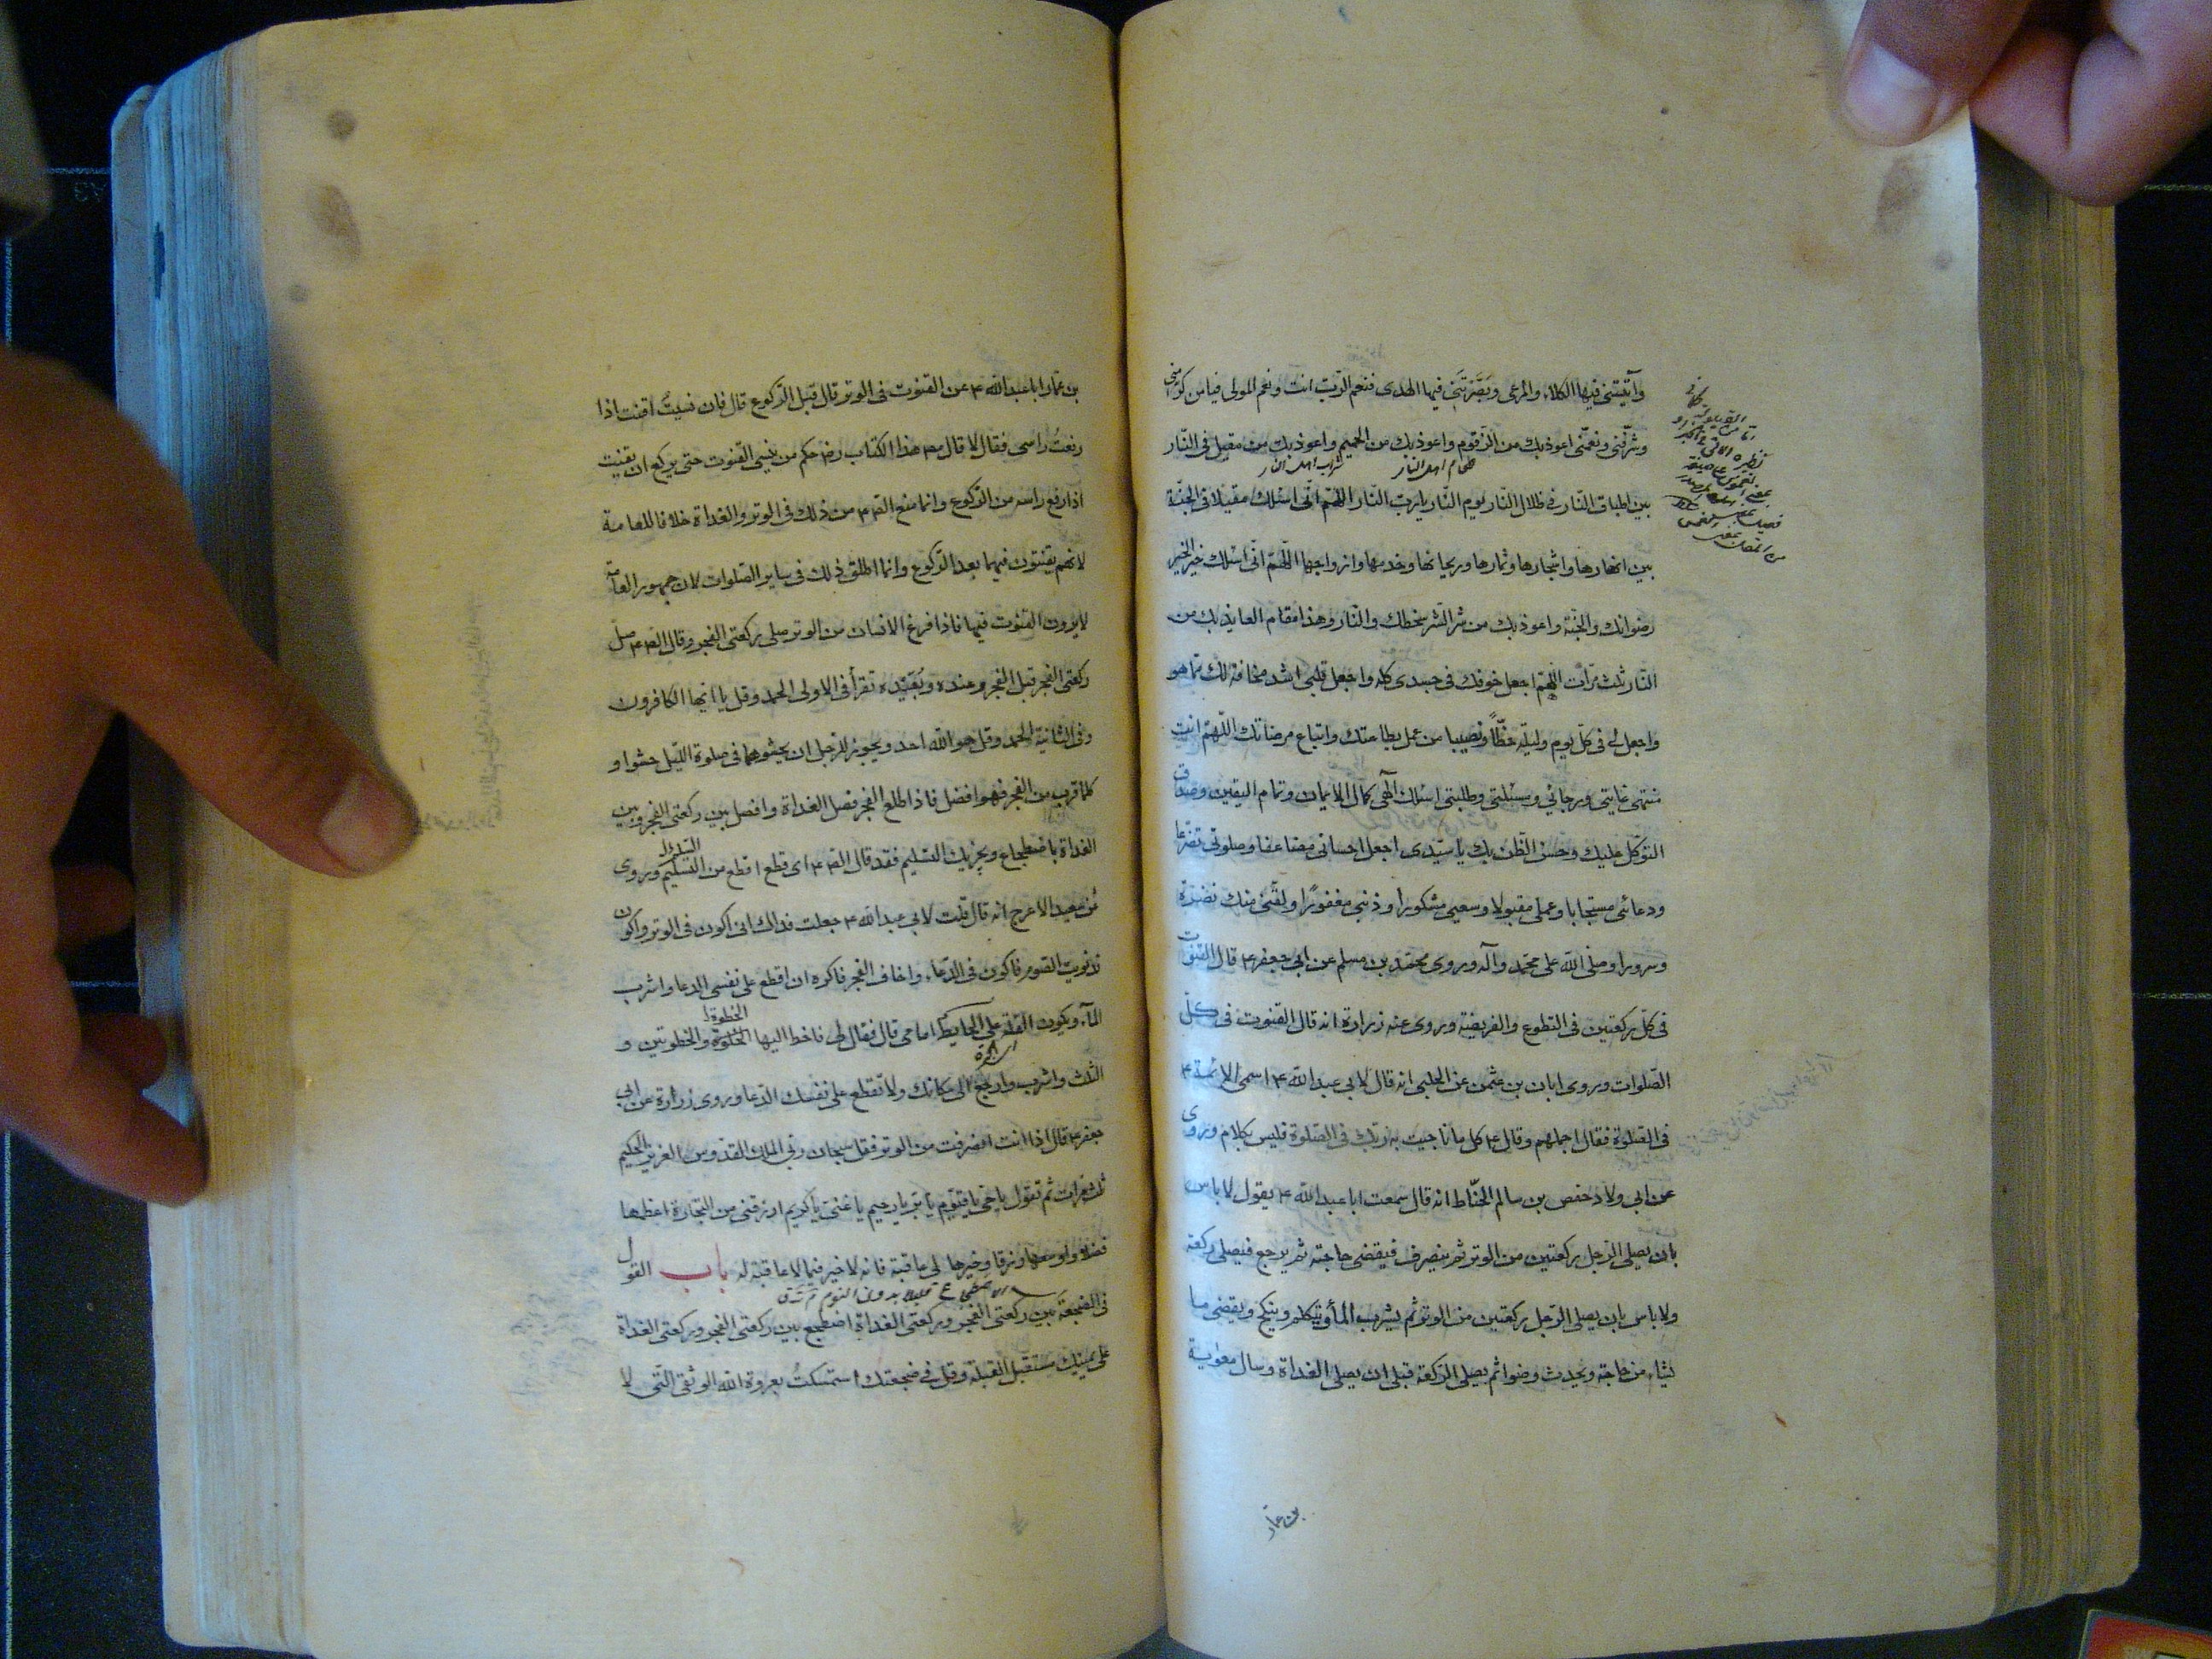 وآتيتني فيها الكلاء والمرعى وبصّرتني فيها الهدى فنعم الرّب انت ونعم المولى فيا من كرّمنى
وشرّفنى ونعّمنى اعوذ بك من الزّقوم واعوذ بك من الحميم واعوذ بك من مقيل فى النّار
طعام اهل النار
شراب اهل النار
بين اطباق النّار فى ظلال النّار يوم النّار يا ربّ النّار اللّهمّ انّى اسئلك مقيلا فى الجنّة
بين انهارها واشجارها وثمارها وريحانها وخدمها وازواجها اللّهمّ انّى اسئلك خير الخير
رضوانك والجنّة واعوذ بك من شرّ الشّر سخطك والنّار وهذا مقام العايذ بك من
النّار ثلث مرّات اللّهمّ اجعل خوفك فى جسدى كله واجعل قلبى اشد مخافة لك ممّا هو
واجعل لى فى كلّ يوم وليلة حظّاً ونصيبا من عمل بطاعتك واتباع مرضاتك اللّهمّ انت
منتهى غايتى ورجائي ومسئلتى وطلبتى اسئلك آلهى كمال الايمان وتمام اليقين وصدق
التوكّل عليك وحسن الظّن بك يا سيّدى اجعل احسانى مضاعفا وصلوتى تضرّعا
ودعائى مستجابا وعملى مقبولا وسعيى مشكورا وذنبى مغفورًا ولقّنى منك نضرة
وسرورا وصلى الله على محمّد وآله وروى محمّد بن مسلم عن ابى جعفر ع قال القنوت
فى كلّ ركعتين فى التطوع والفريضة وروى عنه زرارة انه قال القنوت فى كلّ
الصّلوات وروى ابان بن عثمن عن الحلبى انه قال لابى عبد الله ع اسمى الائمة ع
فى الصّلوة فقال اجملهم وقال ع كل ما ناجيت به ربّك فى الصّلوة فليس بكلام وروى
عن ابى ولاد حفص بن سالم الحنّاط انه قال سمعت ابا عبد الله ع يقول لا باس
بان يصلى الرّجل ركعتين من الوتر ثم ينصرف فيقضى حاجته ثم يرجع فيصلى ركعة
ولا باس بان يصلى الرّجل ركعتين من الوتر ثم يشرب المآء ويتكلم وينكح ويقضى ما
يشاء من حاجة ويحدث وضوا ثم يصلى الرّكعة قبل ان يصلى الغداة وسال معوية
بن عمار
بن عمّار ابا عبد الله ع عن القنوت فى الوتر قال قبل الرّكوع قال فان نسيتُ اقنت اذا
رفعتُ راسى فقال لا قال مص هذا الكتاب رض حكم من ينسى القنوت حتى يركع ان يقنت
اذا رفع راسه من الرّكوع وانما منع الصّ ع من ذلك فى الوتر والغداة خلافا للعامة
لانهم يقنتون فيهما بعد الرّكوع وانما اطلق ذلك فى ساير الصّلوات لان جمهور العامّة
لا يرون القنوت فيها فاذا فرغ الانسان من الوتر صلى ركعتى الفجر وقال الصّ ع صلّ
ركعتى الفجر قبل الفجر وعنده وبُعَيْده تقرأ فى الاولى الحمد وقل يا ايها الكافرون
وفى الثانية الحمد وقل هو الله احد ويجوز للرّجل ان يحشوهما فى صلوة اللّيل حشوا و
كلما قرب من الفجر فهو افضل فاذا طلع الفجر فصل الغداة وافصل بين ركعتى الفجر وبين
الغداة باضطجاع ويجزيك التسليم فقد قال الصّ ع اى قطع اقطع من التسليم وروى
عن سعيد الاعرج انه قال قلت لابى عبد الله ع جعلت فداك انى اكون فى الوتر واكون
قد نويت الصّوم فاكون فى الدّعاء واخاف الفجر فاكره ان اقطع على نفسى الدعا واشرب
المآء ويكون القلّة امامى قال فقال لى فاخط اليها الخطوة والخطوتين و
الثّلث واشرب وارجع الى مكانك ولا تقطع على نفسك الدّعا وروى زرارة عن ابى
جعفر ع قال اذا انت انصرفت من الوتر فقل سبحان ربّى الملك القدّوس العزيز الحكيم
ثلث مرات ثم تقول يا حى يا قيّوم يا برّ يا رحيم يا غنى يا كريم ارزقنى من التجارة اعظمها
فضلا واوسعها رزقا وخيرها لى عاقبة فانه لا خير فيما لا عاقبة له باب القول
فى الضجعة بين ركعتى الفجر وركعتى الغداة اضطجع بين ركعتى الفجر وركعتى الغداة
على يمينك مستقبل القبلة وقل فى ضجعتك استمسكتُ بعروة الله الوثقى التى لا